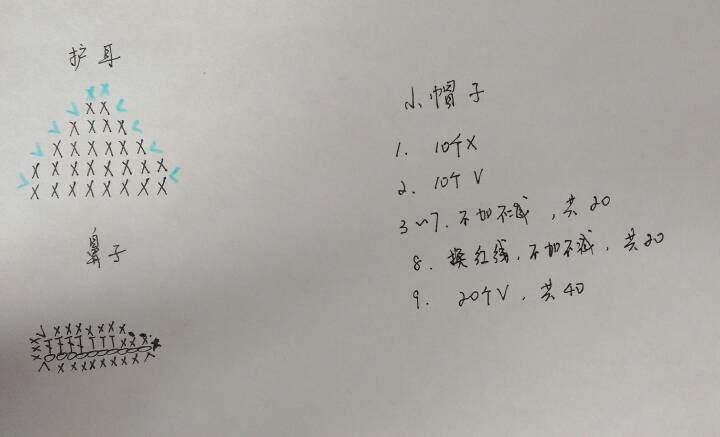 护耳
鼻子
小帽子
1. 10个X
2. 10个V
3~7. 不加不减，共20
8. 换红线，不加不减，共20
9. 20个V，共40